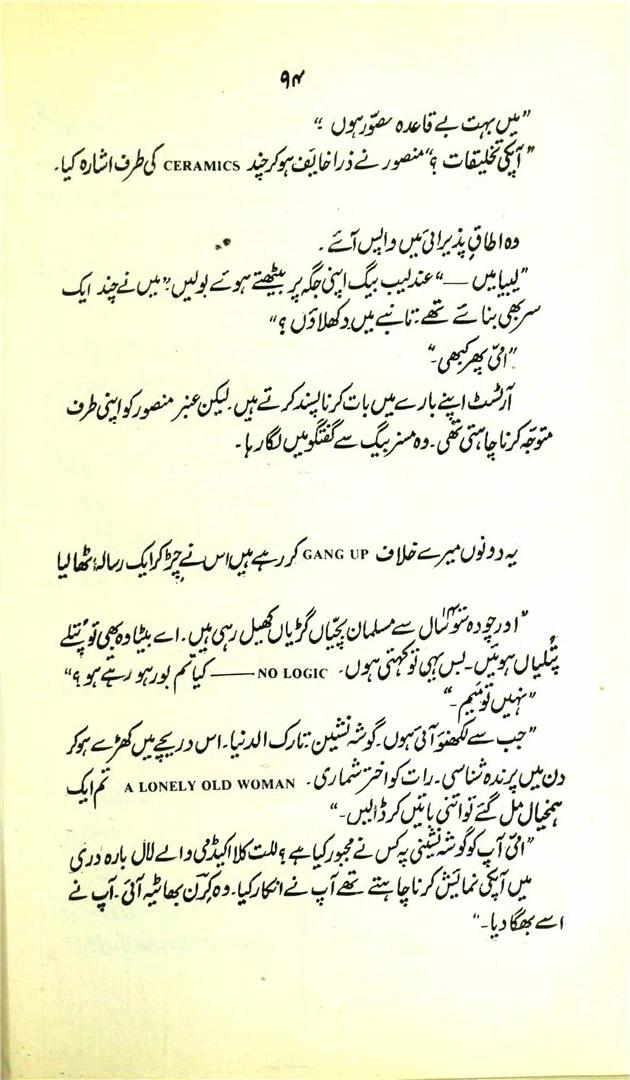 ۹۴
”میں بہت بے قاعدہ مصوّر ہوں ۔“
”آپکی تخلیقات ؟“ منصور نے ذرا خایف ہو کر چند CERAMICS کی طرف اشارہ کیا۔
وہ اطاقِ پذیرائی میں واپس آئے ۔
”لیبیا میں —“ عندلیب بیگ اپنی جگہ پر بیٹھتے ہوئے بولیں۔”میں نے چند ایک
سر بھی بنائے تھے۔ تانبے میں دکھلاؤں ؟“
”امّی پھر کبھی۔“
آرٹسٹ اپنے بارے میں بات کرنا پسند کرتے ہیں۔ لیکن عنبر منصور کو اپنی طرف
متوجّہ کرنا چاہتی تھی۔ وہ مسز بیگ سے گفتگو میں لگا رہا۔
یہ دونوں میرے خلاف GANG UP کر رہے ہیں اس نے چِڑ کر ایک رسالہ اُٹھا لیا
”اور چودہ سَو سال سے مسلمان بچّیاں گڑیاں کھیل رہی ہیں۔ اے بیٹا وہ بھی تو پُتلے
پُتلیاں ہوئیں۔ بس یہی تو کہتی ہوں۔ NO LOGIC —— کیا تم بور ہو رہے ہو ؟“
”نہیں تو میم۔“
”جب سے لکھنؤ آئی ہوں۔ گوشہ نشین۔ تارک الدنیا۔ اس دریچے میں کھڑے ہو کر
دن میں پرندہ شناسی۔ رات کو اختر شماری۔ A LONELY OLD WOMAN تم ایک
ہمخیال مل گئے تو اتنی باتیں کر ڈالیں۔“
”امّی آپ کو گوشہ نشینی پہ کس نے مجبور کیا ہے ؟ للت کلا اکیڈمی والے لال بارہ دری
میں آپکی نمائش کرنا چاہتے تھے آپ نے انکار کیا۔ وہ کِرَن بھاٹیہ آئی۔ آپ نے
اسے بھگا دیا۔“